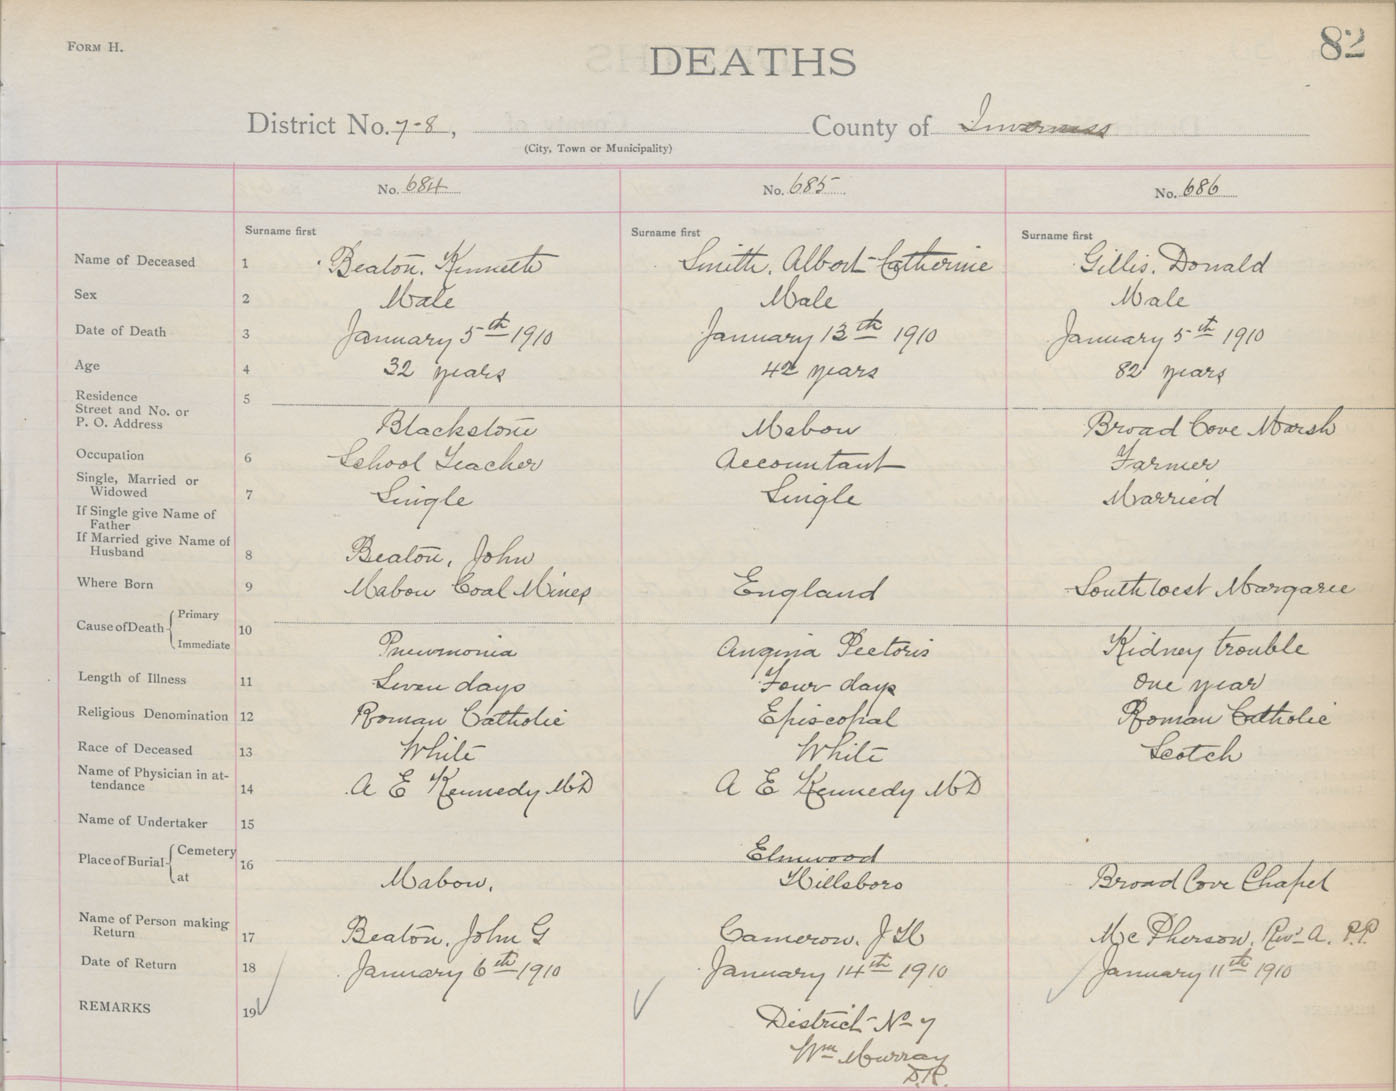 FORM H.
82
DEATHS
District No. 7-8, County of Inverness
(City, Town or Municipality)
No. 684 No. 685 No. 686
Surname first Surname first Surname first
Name of Deceased 1 Beaton, Kenneth Smith, Albert Catherine Gillis, Donald
Sex 2 Male Male Male
Date of Death 3 January 5th 1910 January 13th 1910 January 5th 1910
Age 4 32 years 42 years 82 years
Residence 5
Street and No. or
P. O. Address Blackstone Mabou Broad Cove Marsh
Occupation 6 School Teacher Accountant Farmer
Single, Married or
Widowed 7 Single Single Married
If Single give Name of
Father
If Married give Name of
Husband 8 Beaton, John
Where Born 9 Mabou Coal Mines England South West Margaree
Cause of Death Primary
Immediate 10 Pneumonia Angina Pectoris Kidney trouble
Length of Illness 11 Seven days Four days One year
Religious Denomination 12 Roman Catholic Episcopal Roman Catholic
Race of Deceased 13 White White Scotch
Name of Physician in at-
tendance 14 A E Kennedy MD A E Kennedy MD
Name of Undertaker 15
Place of Burial Cemetery 16 Elmwood
at Mabou. Hillsboro Broad Cove Chapel
Name of Person making
Return 17 Beaton, John G Cameron, J H McPherson, Rev. A. P.P.
Date of Return 18 January 6th 1910 January 14th 1910 January 11th 1910
REMARKS 19 District No 7
Wm Murray
D.R.